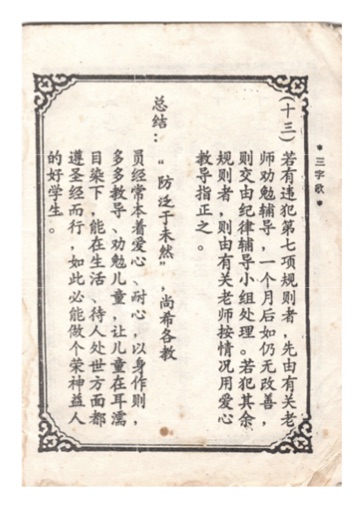 *三字歌*
(十三)若有违犯第七项规则者，先由有关老
师劝勉辅导，一个月后如仍无改善，
则交由纪律辅导小组处理。若犯其余
规则者，则由有关老师按情况用爱心
教导指正之。
总结：“防泛于未然”，尚希各教
员经常本着爱心、耐心，以身作则，
多多教导、劝勉儿童，让儿童在耳濡
目染下，能在生活、待人处世方面都
遵圣经而行，如此必能做个荣神益人
的好学生。